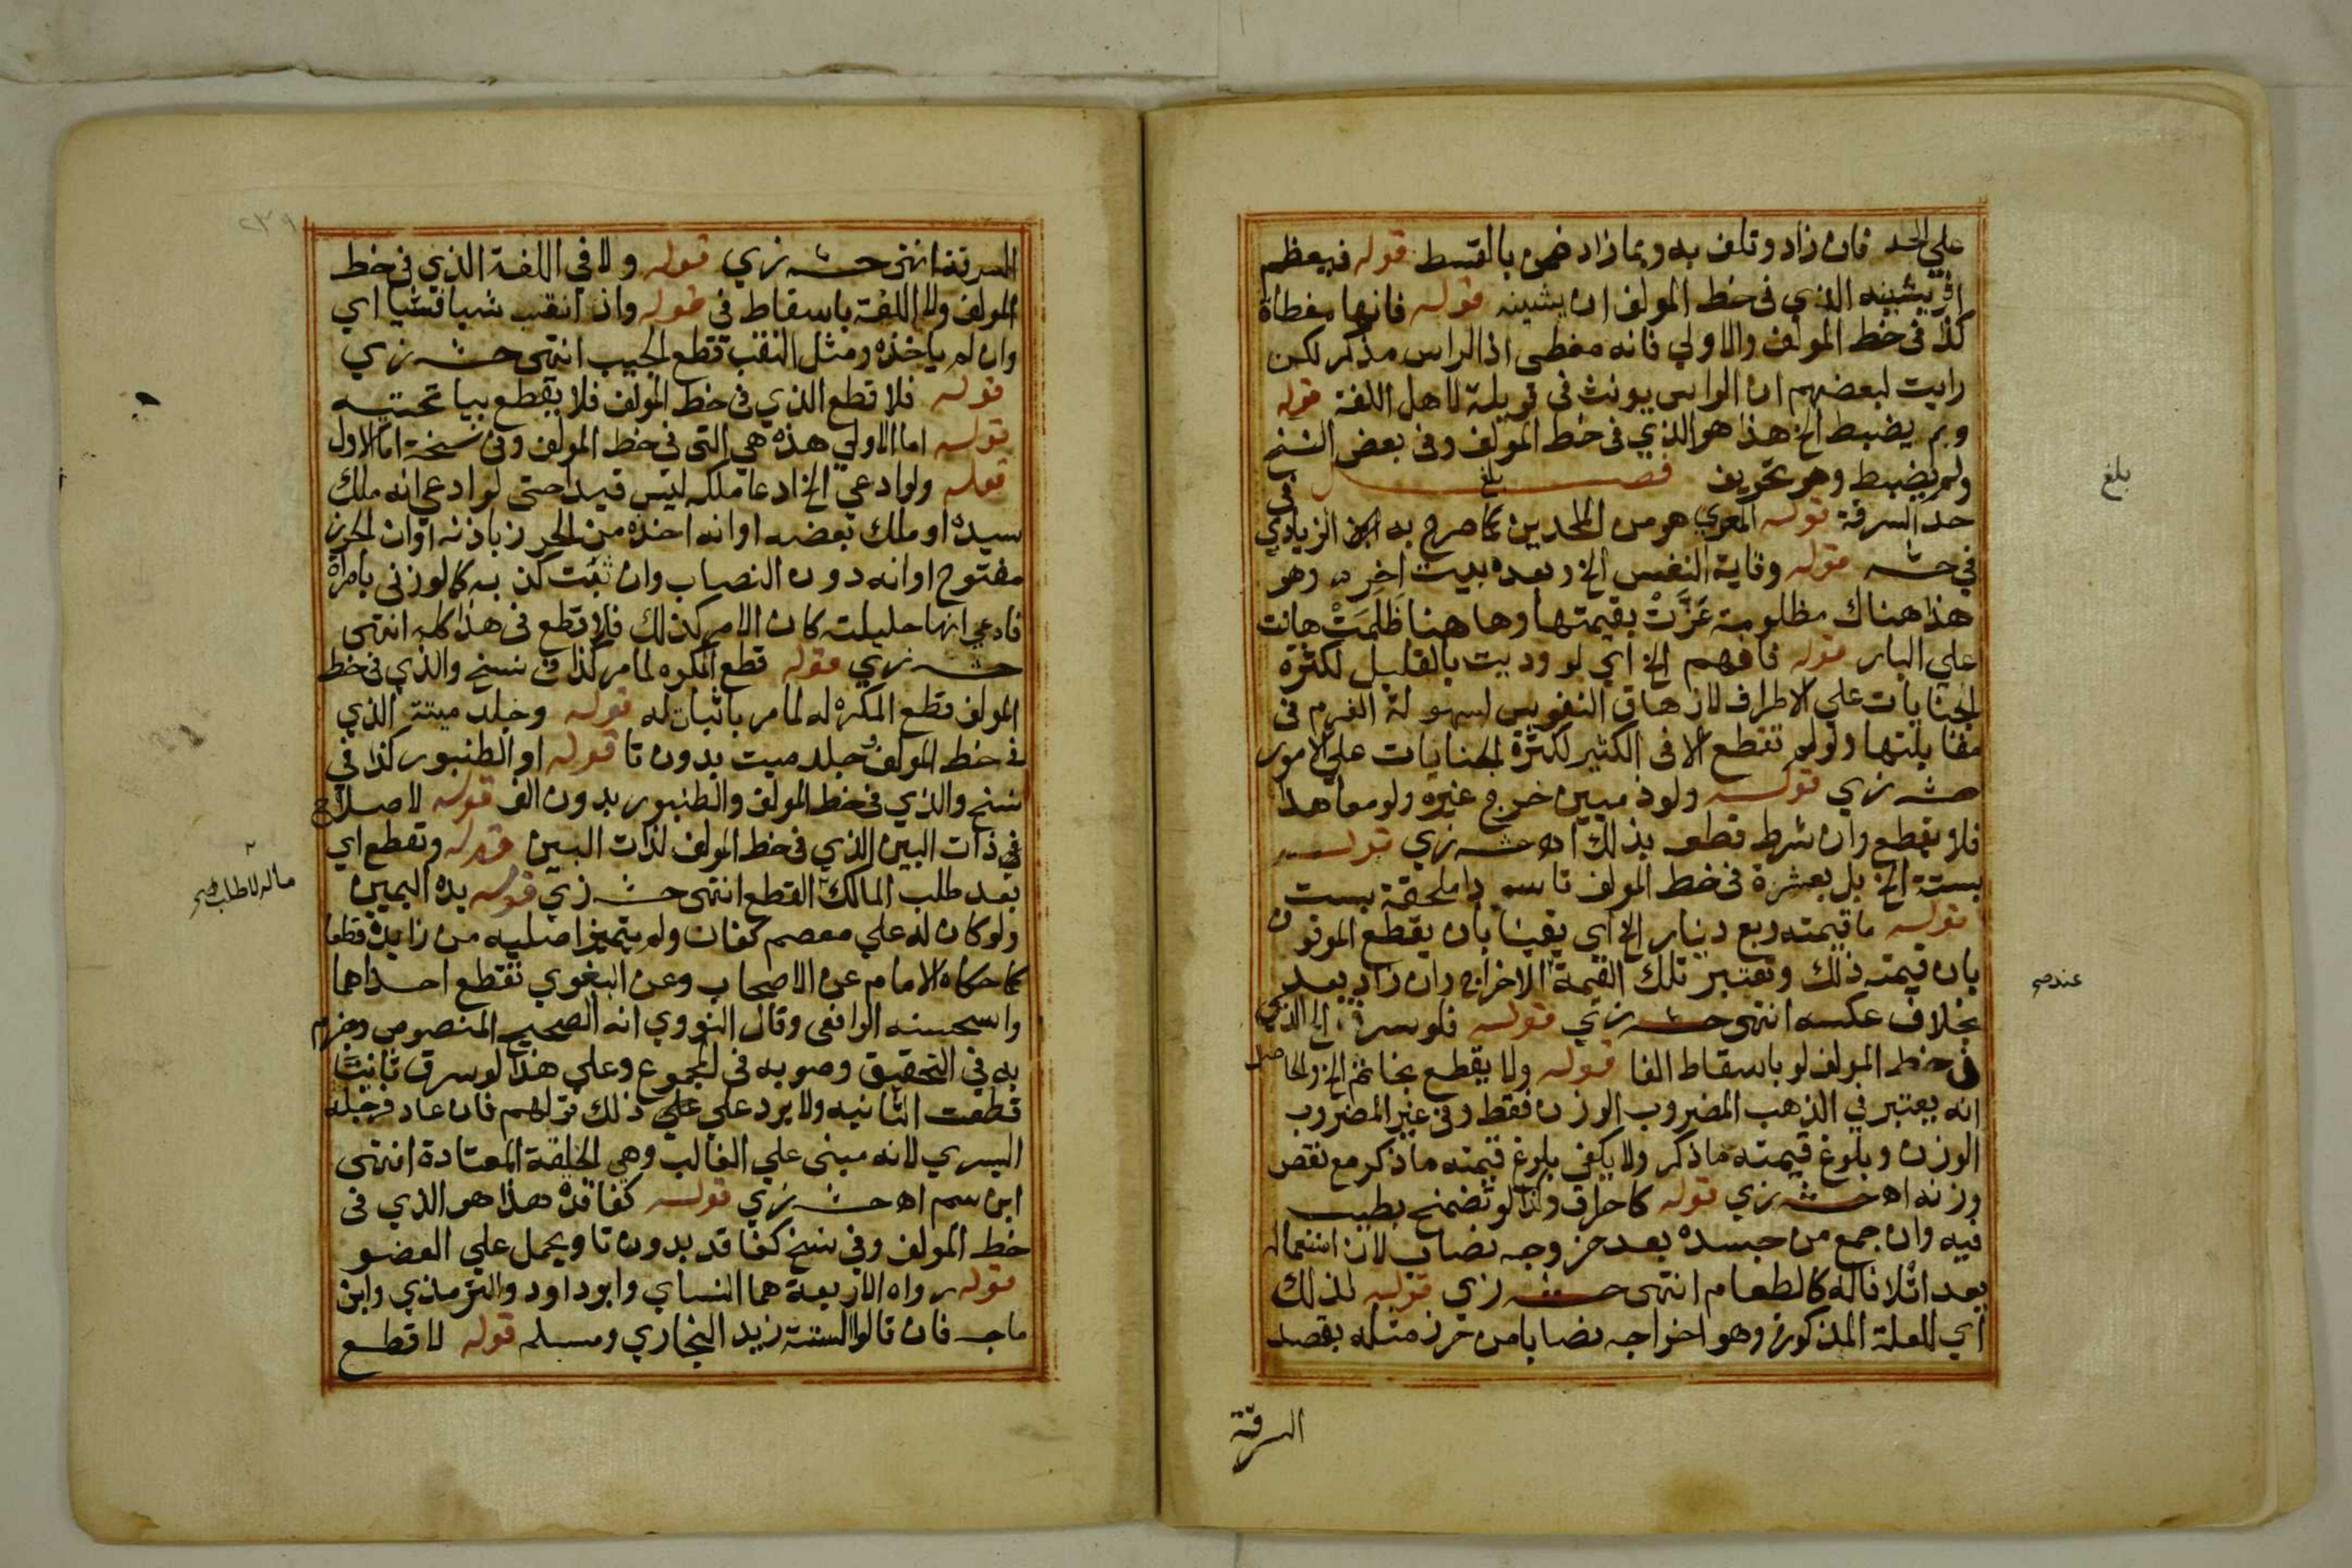 علي الحد فان زاد وتلف به وبما زاد ضمن بالقسط قوله فيعظم
الذي في خط المولف ان يشينه قوله فانها مغطاة
كذا في خط المولف والاولي فانه مغطي اذ الراس مذكر لكن
رايت لبعضهم ان الراس يونث في قويلة لاهل اللغة قوله
وبم يضبط الخ هذا هو الذي في خط المولف وفي بعض النسخ
ولم يضبط وهو تحريف فصل في
بلغ
حد السرقة قوله المعري هو من الملحدين كما صرح به الزيادي
في حشه قوله وقاية النفس الخ وبعده بيت اخر وهو
هذا هناك مظلومة عزت بقيمتها وها هنا ظلمت هانت
علي البار قوله فافهم الخ اي لو وديت بالقليل لكثرة
الجنايات علي الاطراف لازهاق النفوس لسهولة الغرم في
مقابلتها ولو لم تقطع الا في الكثير لكثرة الجنايات علي الامور
حشه زي قوله ولو ذميين خرج غيره ولو معاهدا
فلا يقطع وان شرط قطعه بذلك اه حشه زي قوله
بستة الخ بل بعشرة في خط المولف ملحقة بست
قوله ما قيمته ربع دينار الخ اي يقينا بان يقطع المونون
بان قيمته ذلك وتعتبر تلك القيمة الاخراج وان زاد بعد
بخلاف عكسه انتهى حشه زي قوله فلو سرق الخ الذي
في خط المولف لو باسقاط الفا قوله ولا يقطع بخاتم الخ والحاصل
انه يعتبر في الذهب المضروب الوزن فقط وفي غير المضروب
الوزن وبلوغ قيمته ما ذكر ولا يكفي بلوغ قيمته ما ذكر مع نقص
وزنه اه حشه زي قوله كاحراق وكذا لو تضمخ بطيب
فيه وان جمع من جسده بعد خروجه نصاب لان استعماله
يعد اتلافا له كالطعام انتهى حشه زي قوله لذلك
اي للعلة المذكورة وهو اخراجه نصابا من حرز مثله بقصد
السرقة
بلغ
عند صح
٢٣٩
السرقة انتهى حشه زي قوله ولا في اللغة الذي في خط
المولف ولا اللغة باسقاط في قوله وان انقب شيا فشيا اي
وان لم ياخذه ومثل النقب قطع الجيب انتهى حشه زي
قوله فلا قطع الذي في خط المولف فلا يقطع بيا تحتيه
قوله اما الاولي هذه هي التي في خط المولف وفي نسخة اما الاول
قوله ولو ادعي الخ ادعا ملكه ليس قيدا حتى لو ادعي انه ملك
سيده او ملك بعضه او انه اخذه من الحرز باذنه او ان الحرز
مفتوح او انه دون النصاب وان ثبت كذبه كما لو زنى بامراة
فادعي انها حليلته كان الامر كذلك فلا قطع في هذا كله انتهى
حشه زي قوله قطع المكره لما مر كذا في نسخ والذي في خط
المولف قطع المكره له لما مر باثبات له قوله وجلد ميتة الذي
في خط المولف وجلد ميت بدون تا قوله او الطنبور كذا في
نسخ والذي في خط المولف والطنبور بدون الف قوله لاصلاح
في ذات البين الذي في خط المولف لذات البين قوله وتقطع اي
بعد طلب المالك القطع انتهى حشه زي قوله يده اليمين
ولو كان له علي معصم كفان ولم يتميز اصليه من زايده قطعا
كما حكاه الامام عن الاصحاب وعن البغوي تقطع احداهما
واستحسنه الرافعي وقال النووي انه الصحيح المنصوص وجزم
به في التحقيق وصوبه في المجموع وعلي هذا لو سرق ثانيا
قطعت الثانيه ولا يرد علي علي ذلك قولهم فان عاد فرجله
اليسري لانه مبني علي الغالب وهي الخلقة المعتادة انتهى
ابن سم اه حشه زي قوله كفاقدة هذا هو الذي في
خط المولف وفي نسخ كفاقد بدون تا ويحمل علي العضو
قوله رواه الاربعة هما النساي وابو داود والترمذي وابن
ماجه فان قالوا الستة زيد البخاري ومسلم قوله لا قطع
ماله لا طلب